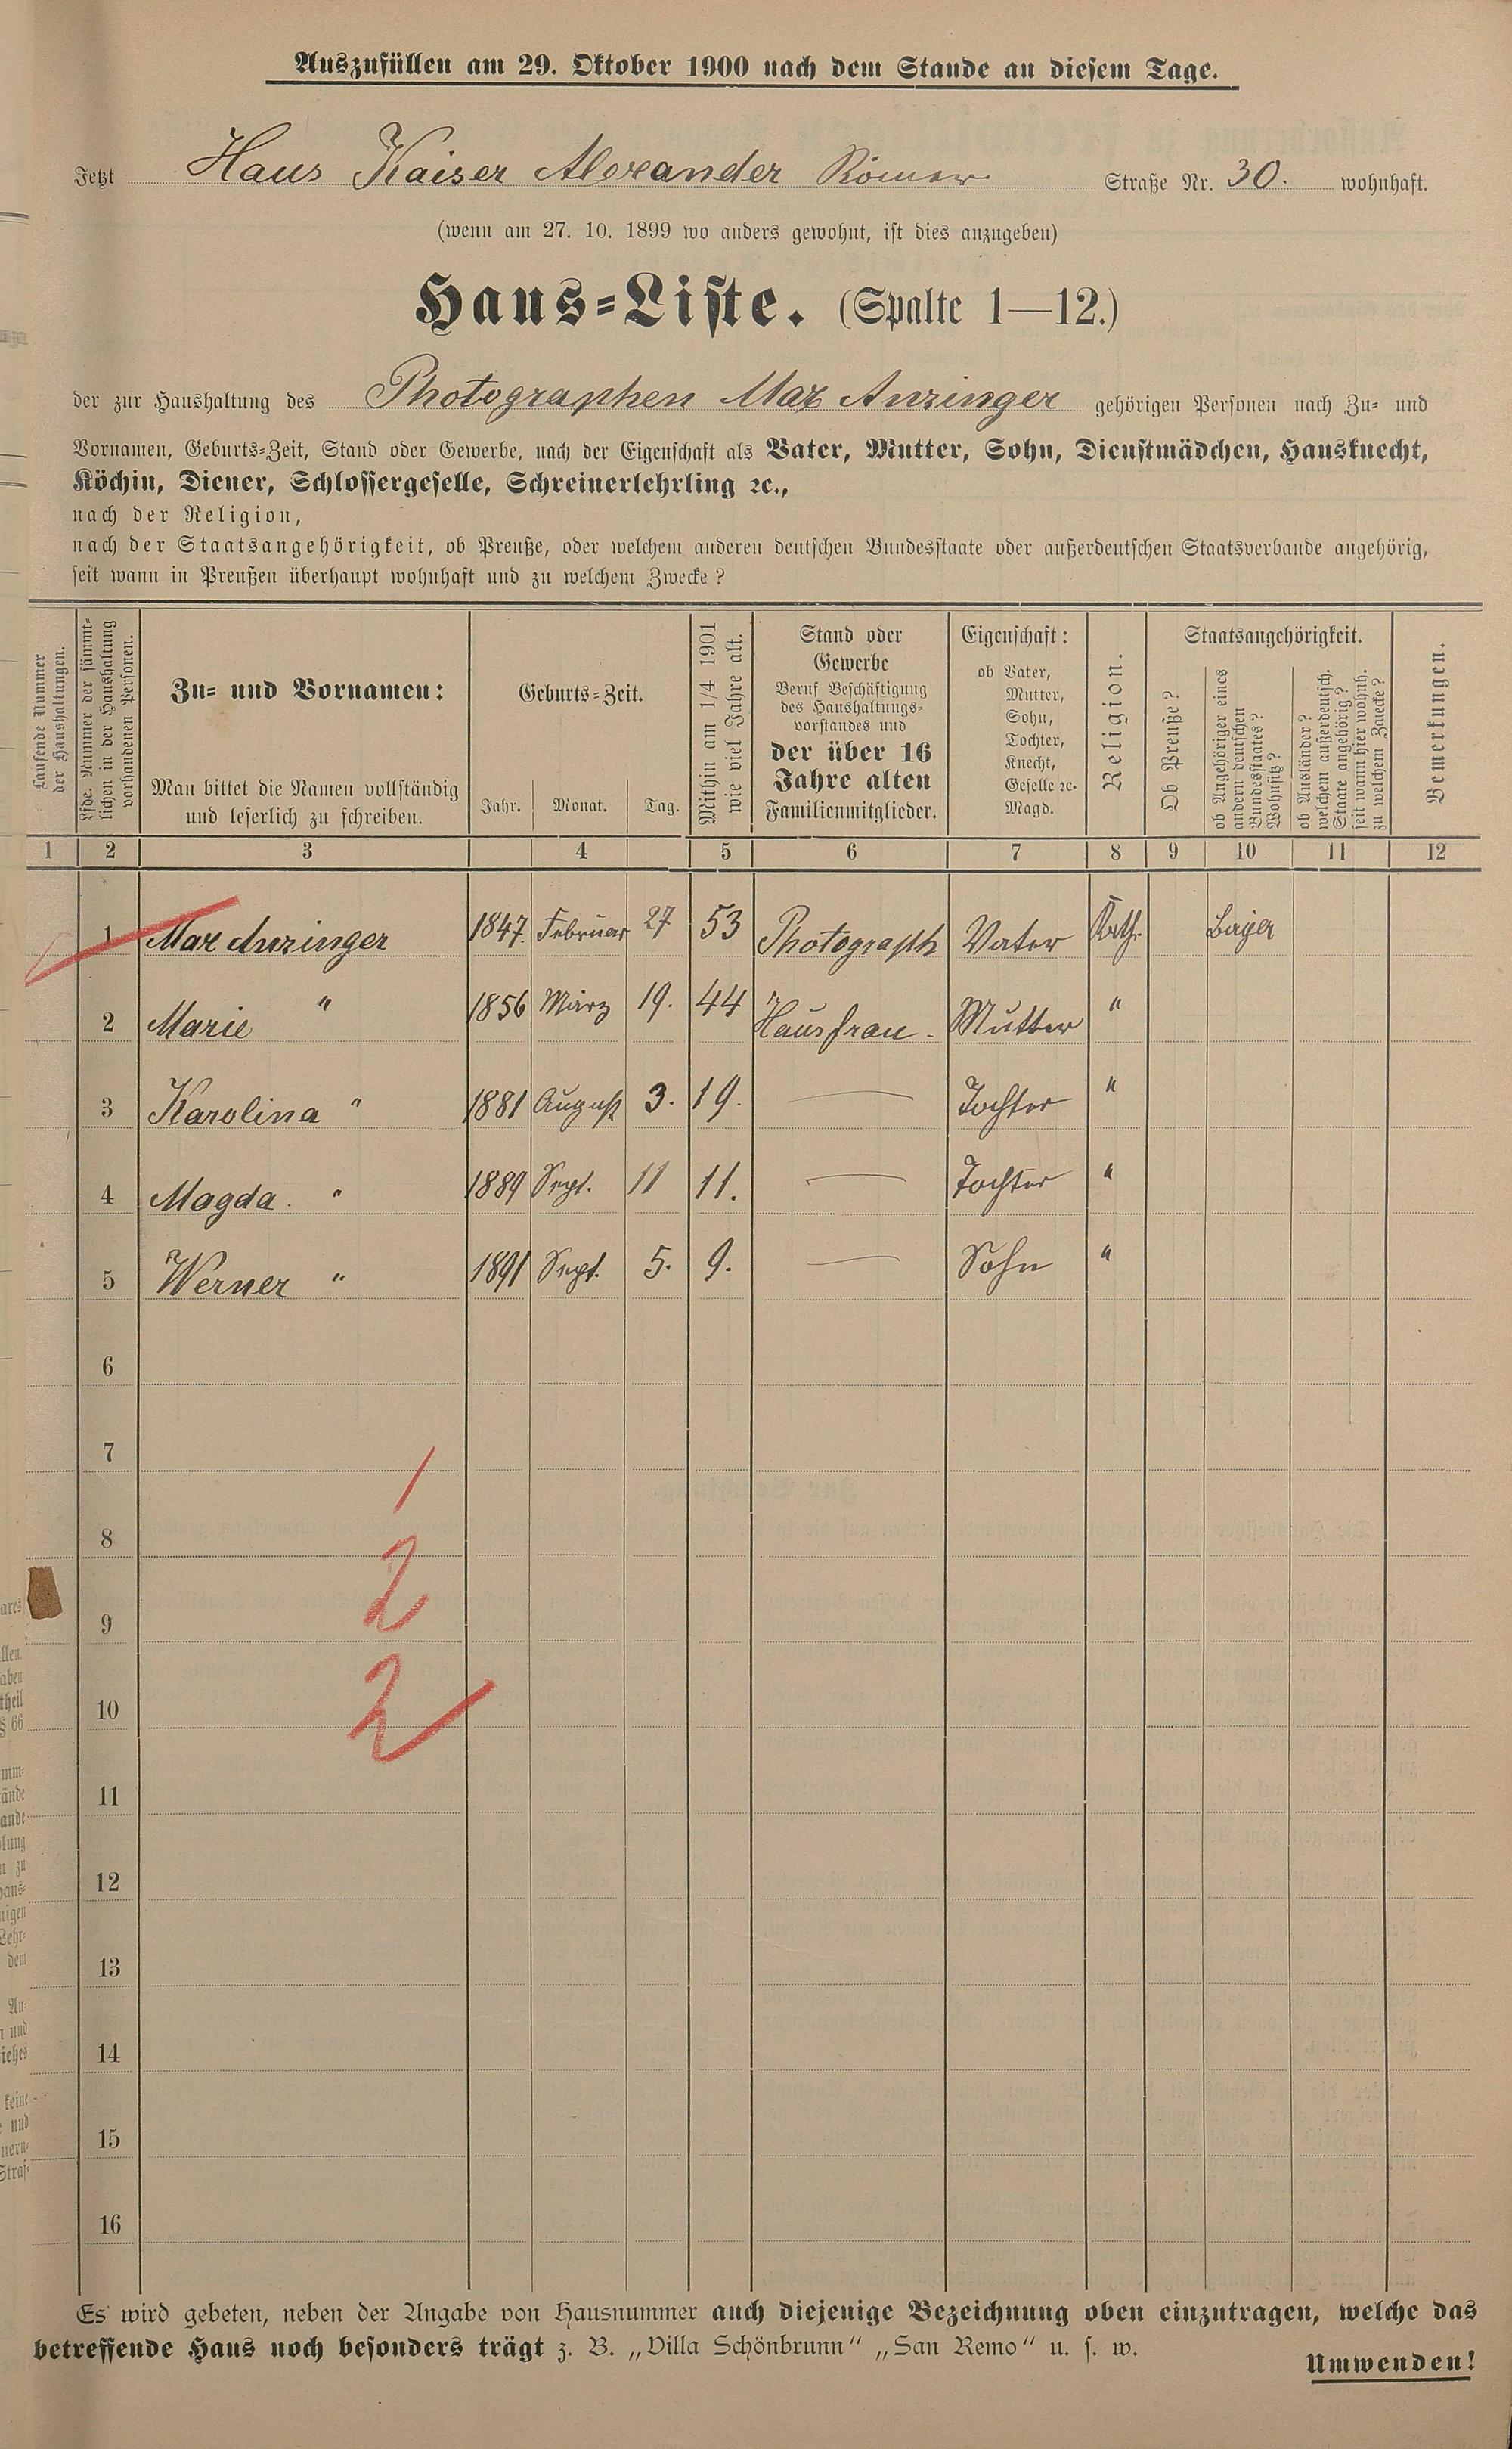 Auszufüllen am 29. Oktober 1900 nach dem Stande an diesem Tage.
Jetzt Haus Kaiser Alexander Römer Straße Nr. 30. wohnhaft.
(wenn am 27. 10. 1899 wo anders gewohnt, ist dies anzugeben)
Haus-Liste. (Spalte 1—12.)
der zur Haushaltung des Photographen Max Anzinger gehörigen Personen nach Zu- und
Vornamen, Geburts-Zeit, Stand oder Gewerbe, nach der Eigenschaft als Vater, Mutter, Sohn, Dienstmädchen, Hausknecht,
Köchin, Diener, Schlossergeselle, Schreinerlehrling ꝛc.,
nach der Religion,
nach der Staatsangehörigkeit, ob Preuße, oder welchem anderen deutschen Bundesstaate oder außerdeutschen Staatsverbande angehörig,
seit wann in Preußen überhaupt wohnhaft und zu welchem Zwecke?
Laufende Nummer
der Haushaltungen.
Lfde. Nummer der sämmt-
lichen in der Haushaltung
vorhandenen Personen.
Zu- und Vornamen:
Man bittet die Namen vollständig
und leserlich zu schreiben.
Geburts-Zeit.
Jahr. Monat. Tag.
Mithin am 1/4 1901
wie viel Jahre alt.
Stand oder
Gewerbe
Beruf Beschäftigung
des Haushaltungs-
vorstandes und
der über 16
Jahre alten
Familienmitglieder.
Eigenschaft:
ob Vater,
Mutter,
Sohn,
Tochter,
Knecht,
Geselle ꝛc.
Magd.
Religion.
Staatsangehörigkeit.
Ob Preuße?
ob Angehöriger eines
andern deutschen
Bundesstaates?
Wohnsitz?
ob Ausländer?
welchem außerdeutsch.
Staate angehörig?
seit wann hier wohnh.
zu welchem Zwecke?
Bemerkungen.
1 2 3 4 5 6 7 8 9 10 11 12
1 Max Anzinger 1847. Februar 27 53 Photograph Vater Kath. Bayer
2 Marie " 1856 März 19. 44 Hausfrau - Mutter "
3 Karolina " 1881 August 3. 19. — Tochter "
4 Magda. " 1889 Sept. 11 11. — Tochter "
5 Werner " 1891 Sept. 5. 9. — Sohn "
6
7
1
8
2
9
2
10
11
12
13
14
15
16
Es wird gebeten, neben der Angabe von Hausnummer auch diejenige Bezeichnung oben einzutragen, welche das
betreffende Haus noch besonders trägt z. B. „Villa Schönbrunn" „San Remo" u. s. w.
Umwenden!